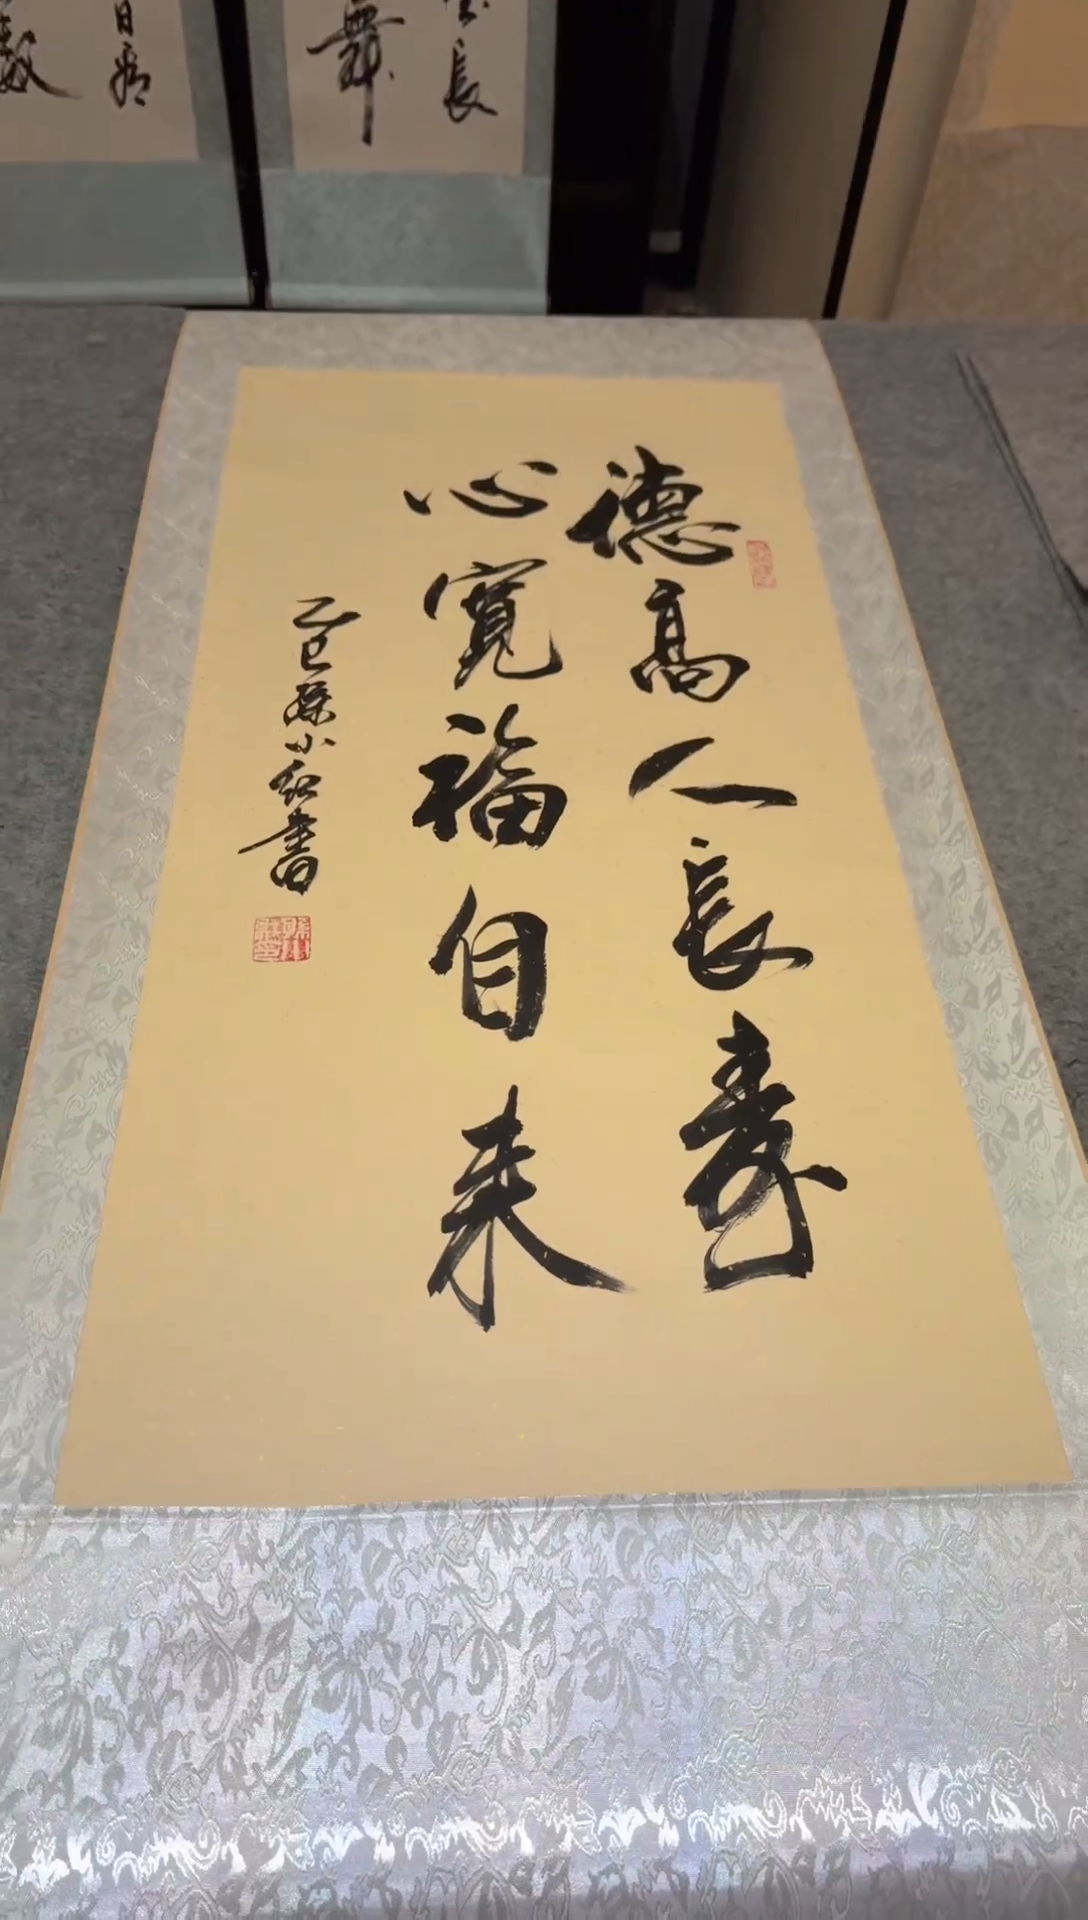 德高人長壽
心寬福自来
乙巳孫小红書
舞
長
日